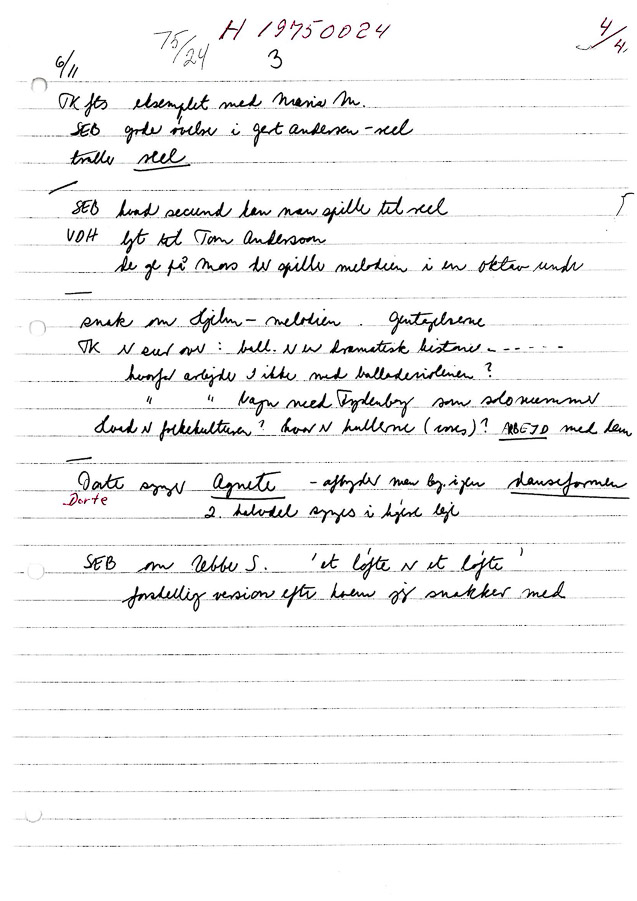 75/24 H 19750024 4/4.
6/11 3
TK fts eksemplet med Maria M.
SEB gode øvelse i gert andersen - reel
tralle reel
SEB hvad secund kan man spille til reel
VDH lyt til Tom Anderson
de ge på Mors der spille melodien i en oktav unde
snak om Hjelm - melodien. Gentagelserne
TK : ball. er en dramatisk historie - - - - - -
hvorfor arbejder I ikke med balladeviolinen?
" " Vagn med som solonummer
Hvad er folkekulturen? hvor er hullerne ( )? ARBEJD med dem
Dorte synger Agnete - afbryder men beg. igen danseformen
Dorte 2. halvdel synges i højere leje
SEB om Ebbe S. 'et løfte er et løfte'
forskellig version efter hvem jeg snakker med